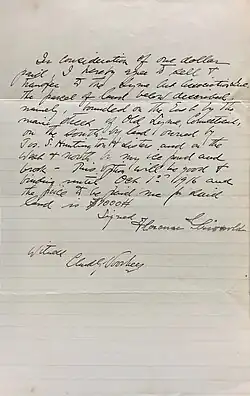 In consideration of one dollar
paid, I hereby agree to sell &
transfer to the Lyme Art Association Inc.
the parcel of land below described
namely, bounded on the East by the
main street of Old Lyme, Connecticut,
on the South by land owned by
Jos. S. Huntington & sister and on the
West & north by my land and
brook - This option will be good &
binding until 1st 1916 and
the price to be paid me for said
land is $1000
Signed
Florence Griswold
Witness
Voorhees